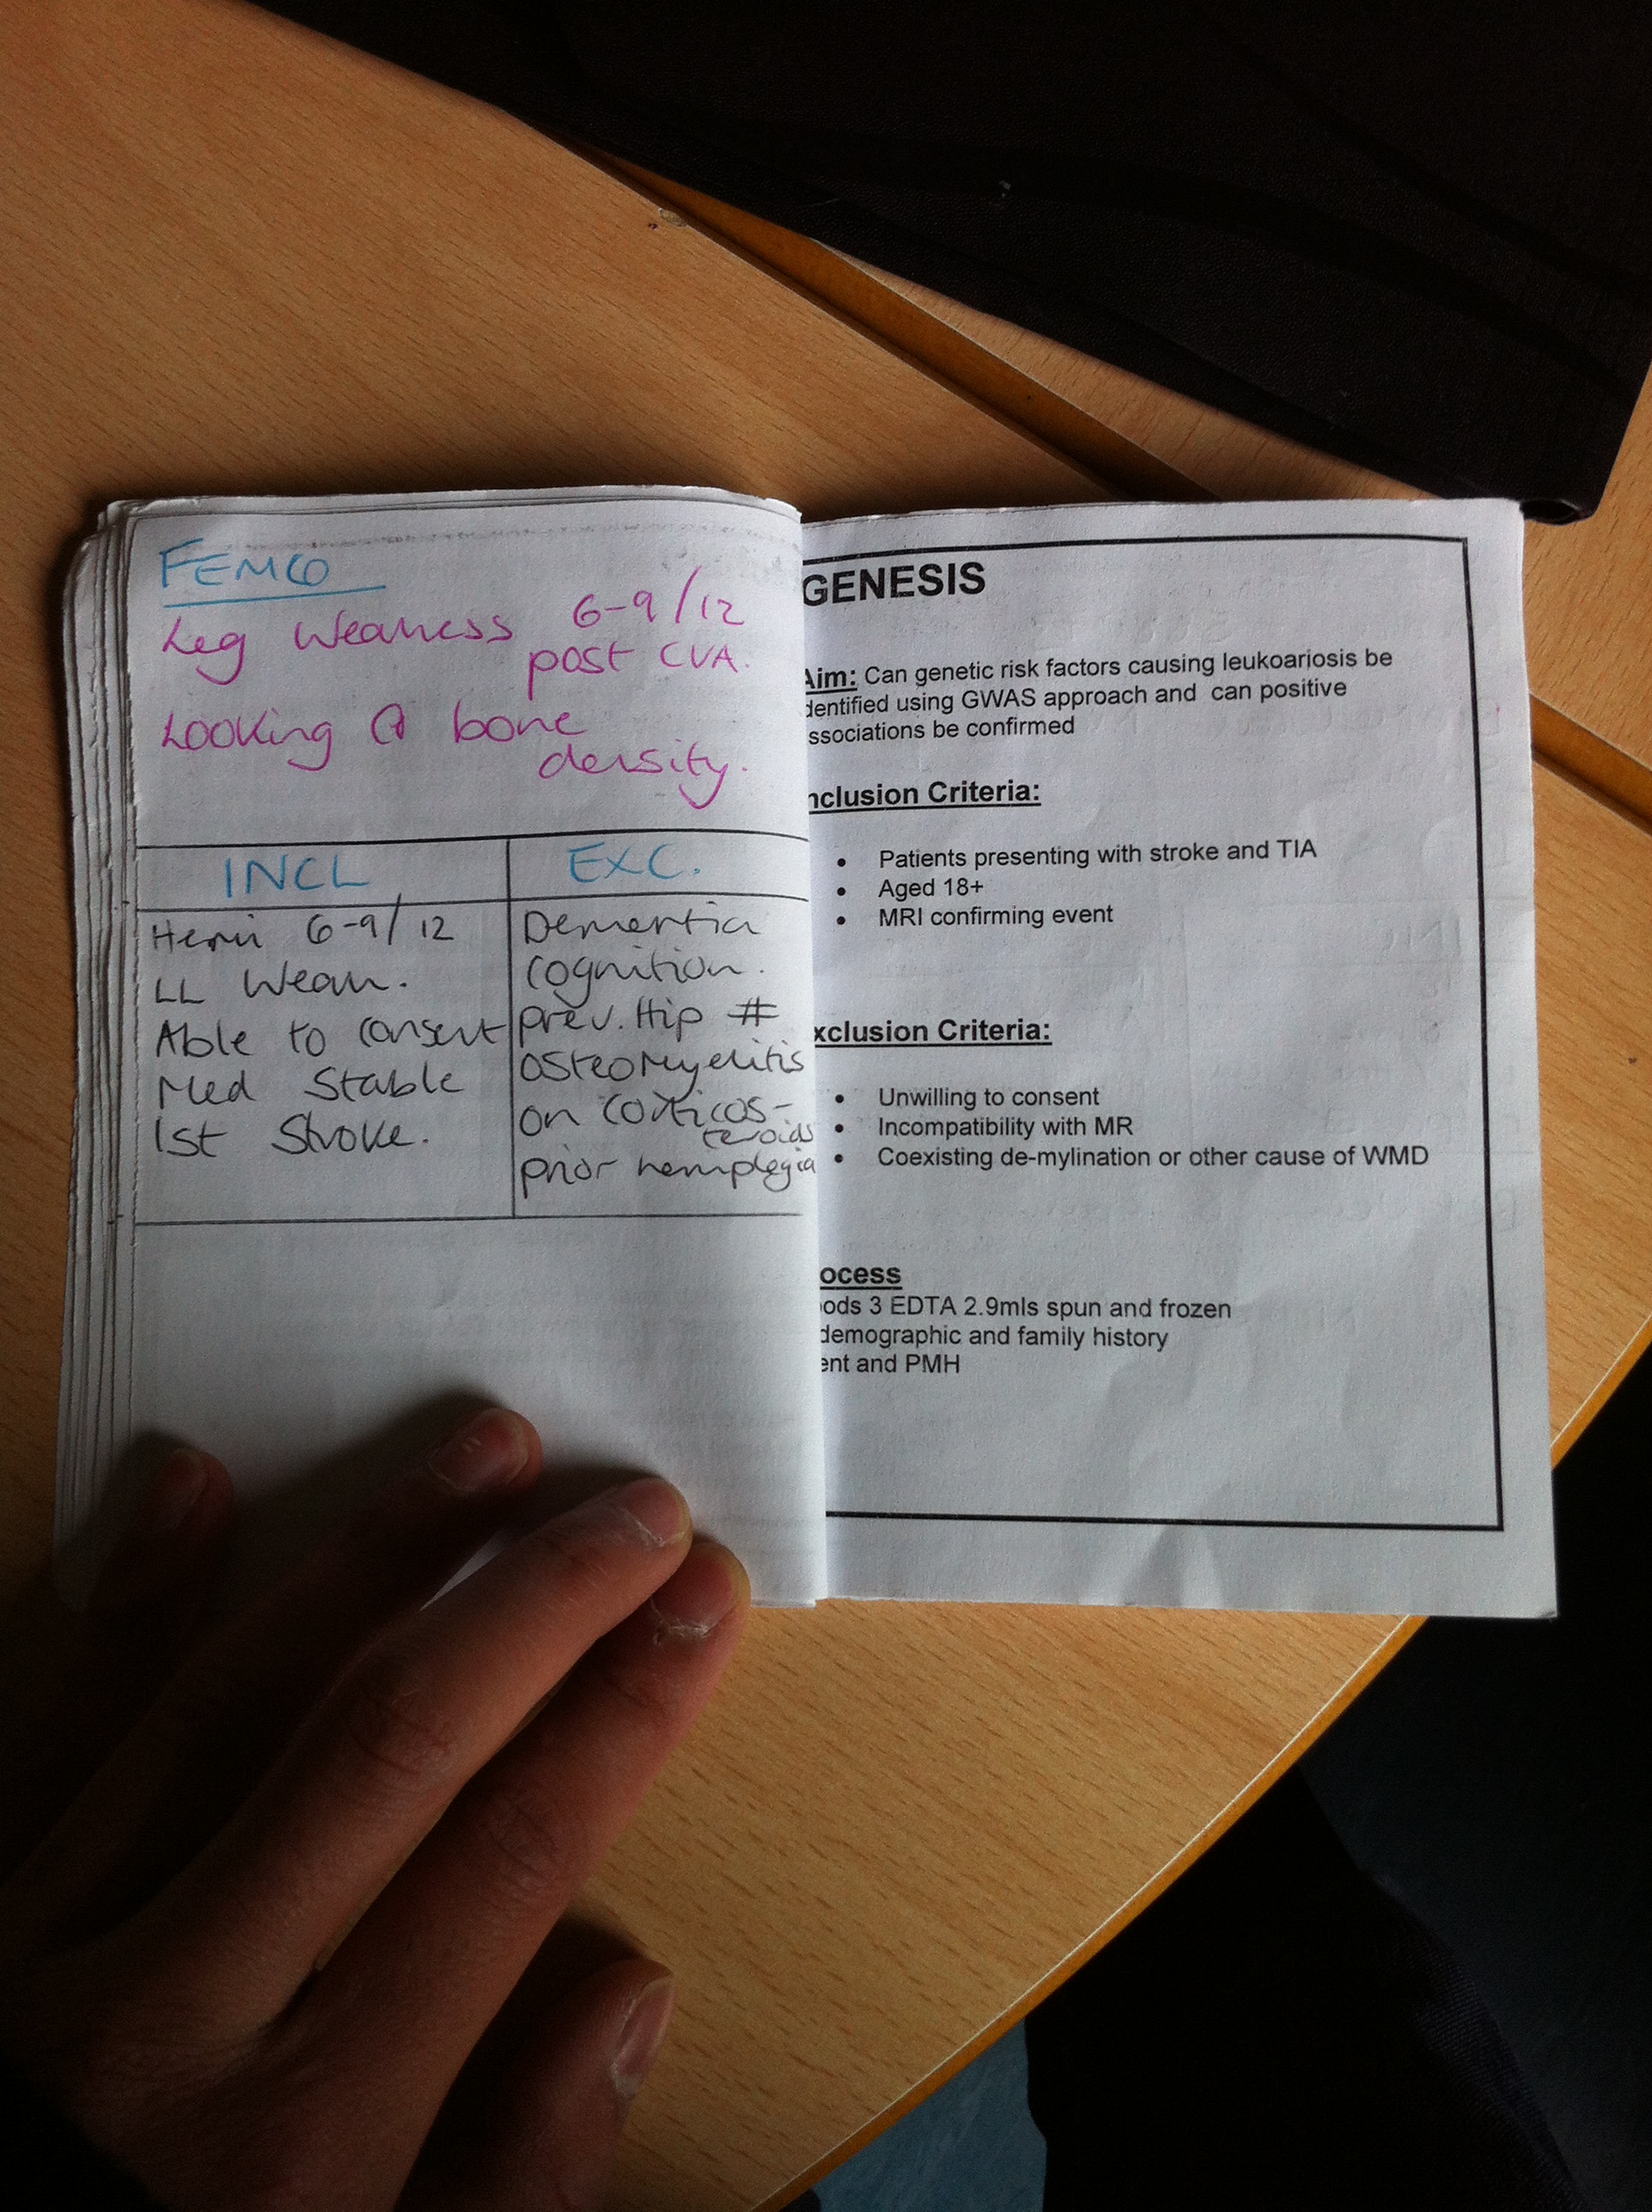 FEMCO
Leg Weakness 6-9/12
post CVA.
Looking @ bone
density.
INCL
EXC.
Hemi 6-9/12
LL Weak.
Able to consent
Med Stable
1st Stroke.
Dementia
Cognition.
prev. Hip #
Osteomyelitis
on corticos-
teroids
prior hemiplegia
GENESIS
Aim: Can genetic risk factors causing leukoariosis be
dentified using GWAS approach and can positive
ssociations be confirmed
nclusion Criteria:
• Patients presenting with stroke and TIA
• Aged 18+
• MRI confirming event
xclusion Criteria:
• Unwilling to consent
• Incompatibility with MR
• Coexisting de-mylination or other cause of WMD
ocess
ods 3 EDTA 2.9mls spun and frozen
demographic and family history
ent and PMH